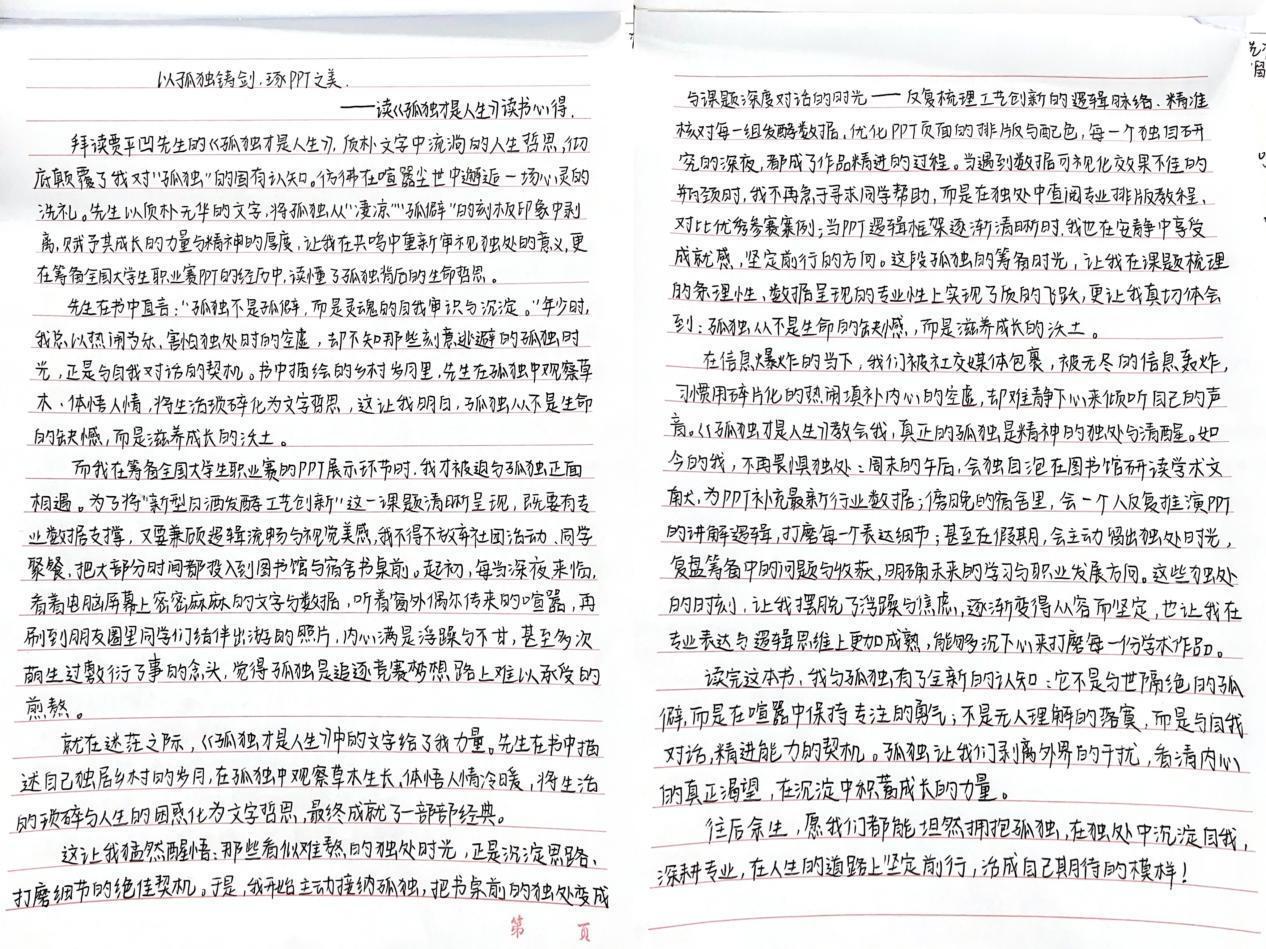 以孤独铸剑,琢PPT之美.
——读《孤独才是人生》读书心得.
拜读贾平凹先生的《孤独才是人生》,质朴文字中流淌的人生哲思,彻
底颠覆了我对"孤独"的固有认知。仿佛在喧嚣尘世中邂逅一场心灵的
洗礼。先生以质朴无华的文字,将孤独从"凄凉""孤僻"的刻板印象中剥
离,赋予其成长的力量与精神的厚度,让我在共鸣中重新审视独处的意义,更
在筹备全国大学生职业赛PPT的经历中,读懂了孤独背后的生命哲思。
先生在书中直言:"孤独不是孤僻,而是灵魂的自我审识与沉淀。"年少时,
我总以热闹为乐、害怕独处时的空虚,却不知那些刻意逃避的孤独时
光,正是与自我对话的契机。书中描绘的乡村岁月里,先生在孤独中观察草
木、体悟人情,将生活琐碎化为文字哲思,这让我明白,孤独从不是生命
的缺憾,而是滋养成长的沃土。
而我在筹备全国大学生职业赛的PPT展示环节时,我才被迫与孤独正面
相遇。为了将"新型白酒发酵工艺创新"这一课题清晰呈现,既要有专
业数据支撑,又要兼顾逻辑流畅与视觉美感,我不得不放弃社团活动、同学
聚餐,把大部分时间都投入到图书馆与宿舍书桌前。起初,每当深夜来临,
看着电脑屏幕上密密麻麻的文字与数据,听着窗外偶尔传来的喧嚣,再
刷到朋友圈里同学们结伴出游的照片,内心满是浮躁与不甘,甚至多次
萌生过敷衍了事的念头,觉得孤独是追逐竞赛梦想路上难以承受的
煎熬。
就在迷茫之际,《孤独才是人生》中的文字给了我力量。先生在书中描
述自己独居乡村的岁月,在孤独中观察草木生长、体悟人情冷暖,将生活
的琐碎与人生的困惑化为文字哲思,最终成就了一部部经典。
这让我猛然醒悟:那些看似难熬的独处时光,正是沉淀思路、
打磨细节的绝佳契机。于是,我开始主动接纳孤独,把书桌前的独处变成
第 页
与课题深度对话的时光——反复梳理工艺创新的逻辑脉络、精准
核对每一组发酵数据,优化PPT页面的排版与配色,每一个独自研
究的深夜,都成了作品精进的过程。当遇到数据可视化效果不佳的
瓶颈时,我不再急于寻求同学帮助,而是在独处中查阅专业排版教程、
对比优秀参赛案例;当PPT逻辑框架逐渐清晰时,我也在安静中享受
成就感,坚定前行的方向。这段孤独的筹备时光,让我在课题梳理
的条理性、数据呈现的专业性上实现了质的飞跃,更让我真切体会
到:孤独从不是生命的缺憾,而是滋养成长的沃土。
在信息爆炸的当下,我们被社交媒体包裹,被无尽的信息轰炸,
习惯用碎片化的热闹填补内心的空虚,却难静下心来倾听自己的声
音。《孤独才是人生》教会我,真正的孤独是精神的独处与清醒。如
今的我,不再畏惧独处:周末的午后,会独自泡在图书馆研读学术文
献,为PPT补充最新行业数据;傍晚的宿舍里,会一个人反复推演PPT
的讲解逻辑,打磨每一个表达细节;甚至在假期,会主动留出独处时光,
复盘筹备中的问题与收获,明确未来的学习与职业发展方向。这些独处
的时刻,让我摆脱了浮躁与焦虑,逐渐变得从容而坚定,也让我在
专业表达与逻辑思维上更加成熟,能够沉下心来打磨每一份学术作品。
读完这本书,我与孤独有了全新的认知:它不是与世隔绝的孤
僻,而是在喧嚣中保持专注的勇气;不是无人理解的落寞,而是与自我
对话,精进能力的契机。孤独让我们剥离外界的干扰,看清内心
的真正渴望,在沉淀中积蓄成长的力量。
往后余生,愿我们都能坦然拥抱孤独,在独处中沉淀自我,
深耕专业,在人生的道路上坚定前行,活成自己期待的模样!